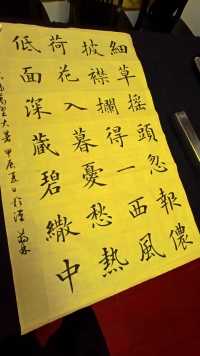 細草搖頭忽報儂
披襟攔得一西風
荷花入暮憂愁熱
低面深藏碧繖中
大暑甲辰夏日